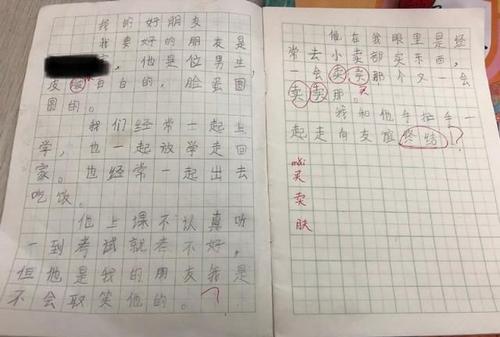 我的好朋友
我要好的朋友是
，他是位男生，
皮肤白白的，脸蛋圆
圆的。
我们经常一起上
学，也一起放学走回
家。也经常一起出去
吃饭。
他上课不认真听
一到考试就考不好，
但他是我的朋友我是
不会取笑他的。
他在我眼里是经
常去小卖部买东西，
一会卖卖那个又一会
卖卖那。买
我和他手拉手一
起走向友谊终结
?
mǎi
买
卖
肤